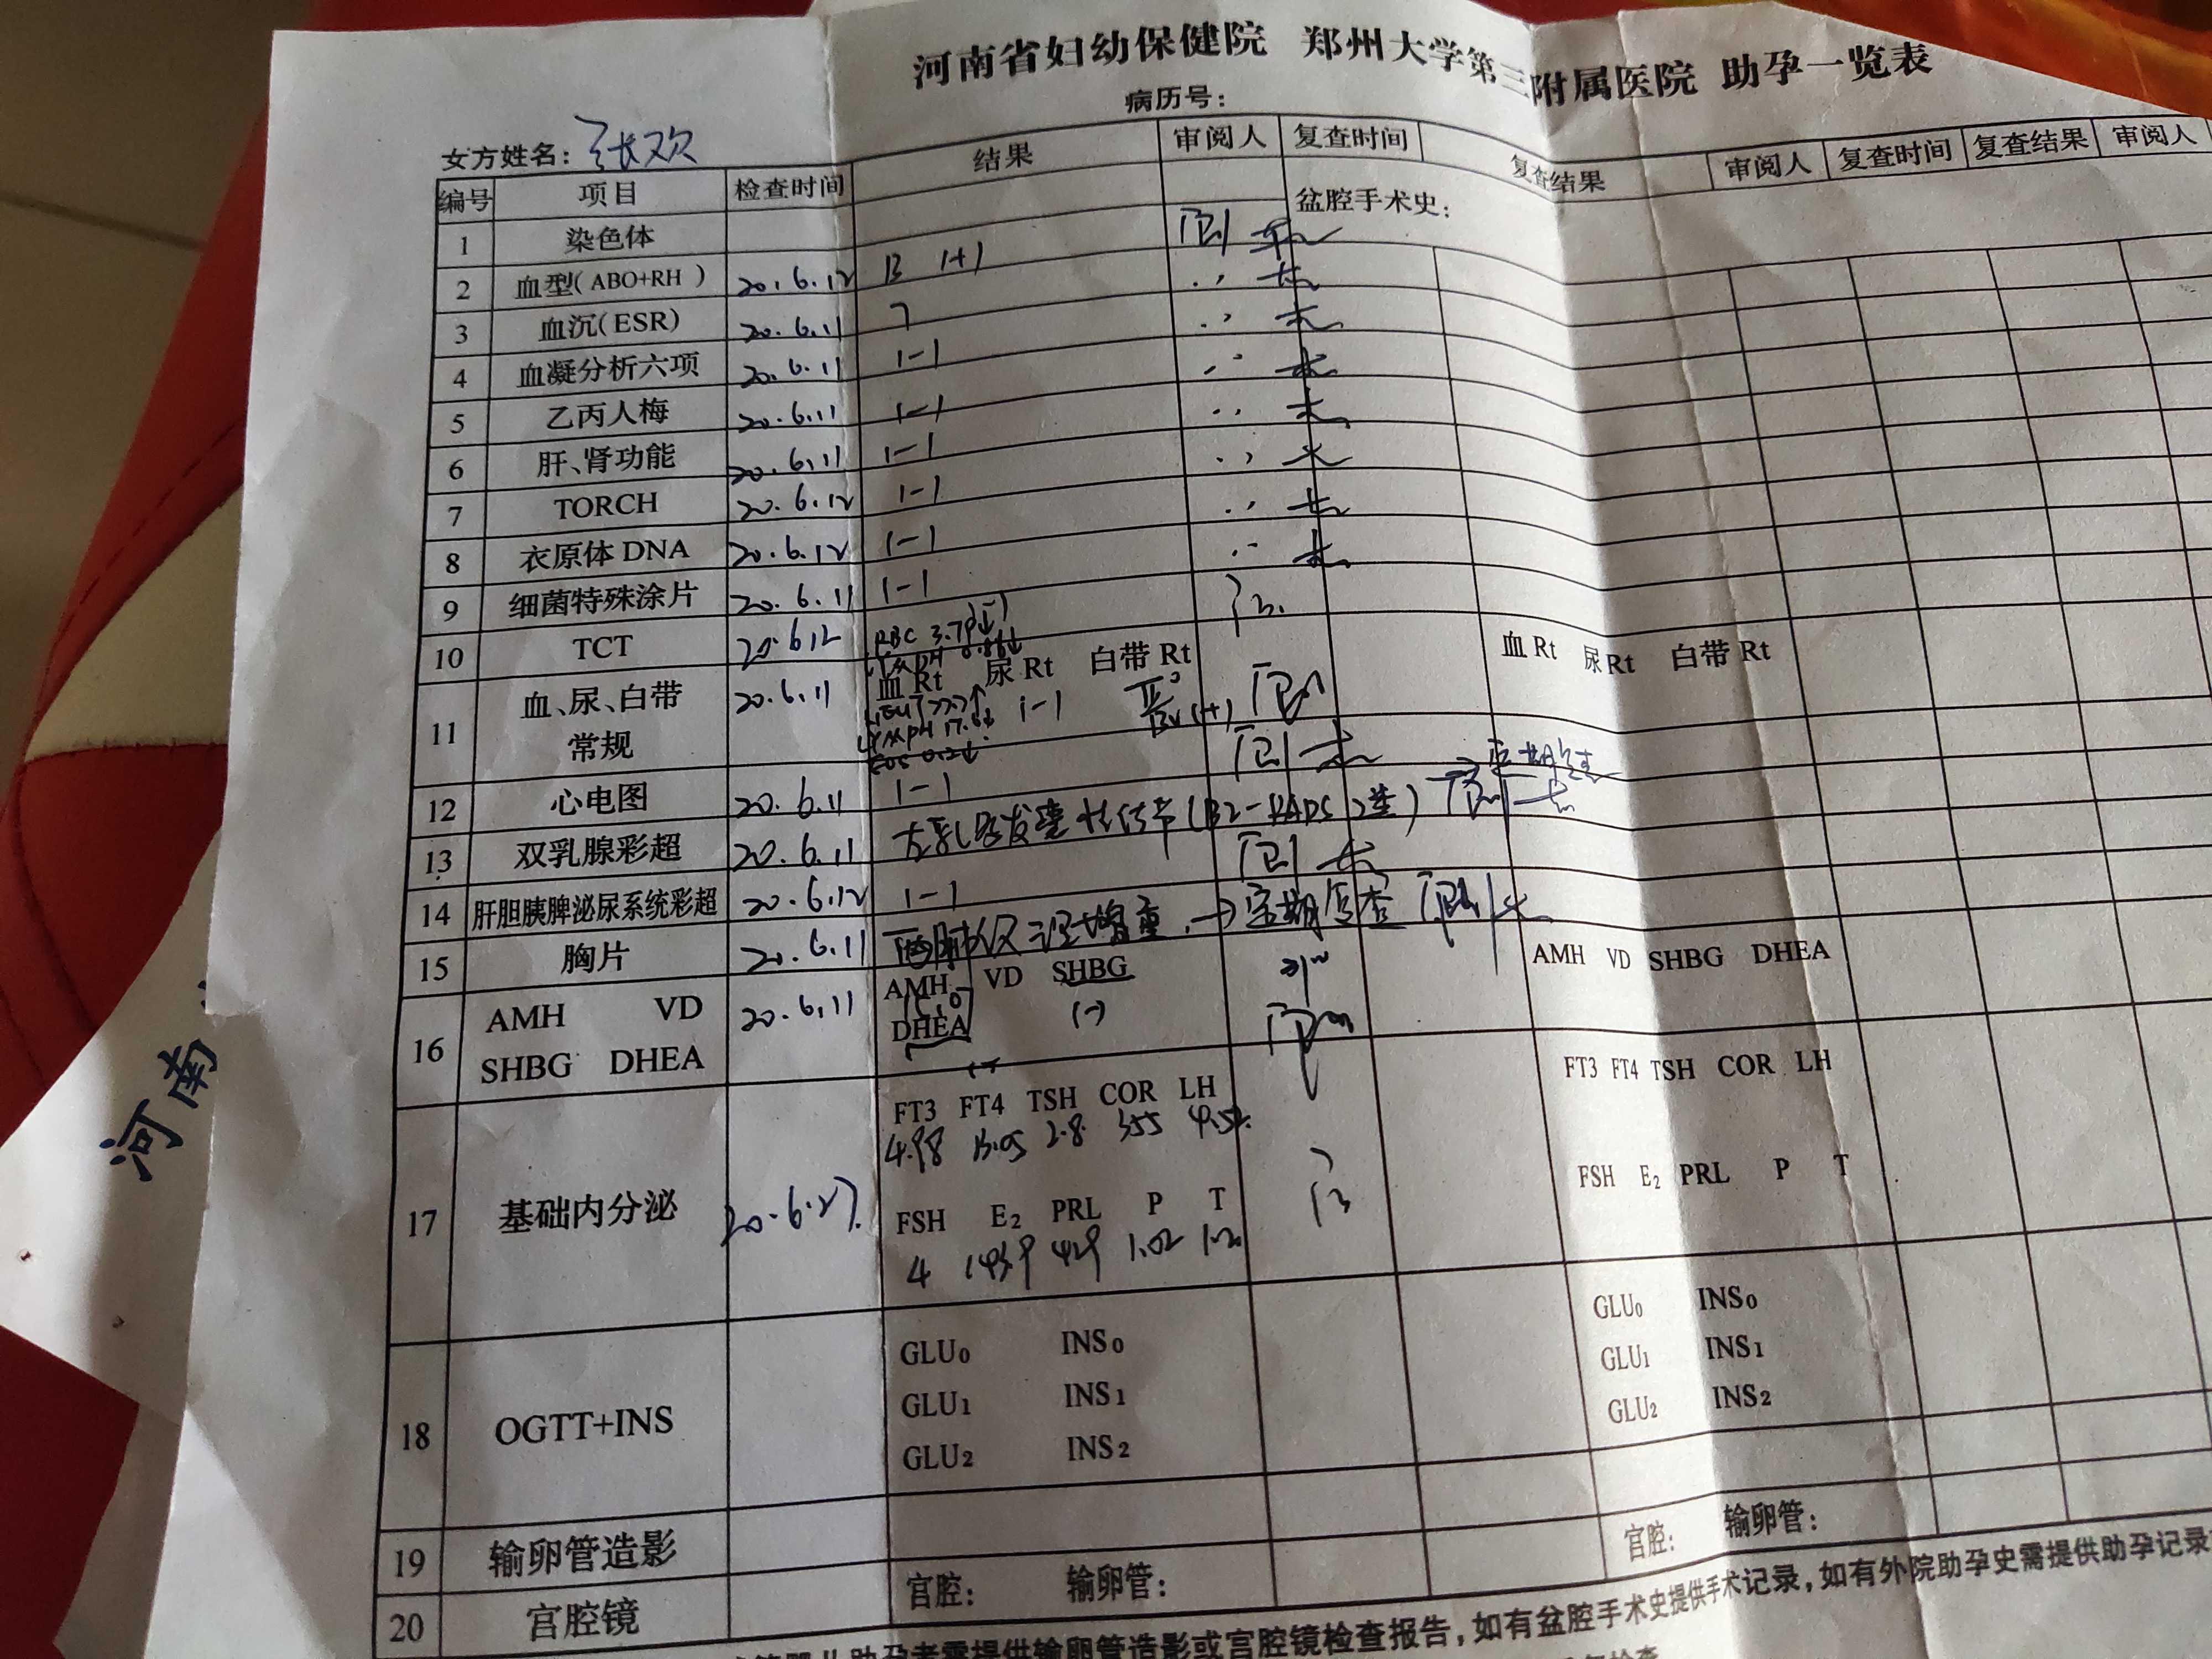 河南省妇幼保健院 郑州大学第三附属医院 助孕一览表
病历号：
女方姓名：张欢
编号 项目 检查时间 结果 审阅人 复查时间 复查结果 审阅人 复查时间 复查结果 审阅人
1 染色体 盆腔手术史：
2 血型(ABO+RH) 20.6.12 B (+)
3 血沉(ESR) 20.6.11 7
4 血凝分析六项 20.6.11 (-)
5 乙丙人梅 20.6.11 (-)
6 肝、肾功能 20.6.11 (-)
7 TORCH 20.6.12 (-)
8 衣原体 DNA 20.6.12 (-)
9 细菌特殊涂片 20.6.11 (-)
10 TCT 20.6.12
RBC 3.79↓
11 血、尿、白带 常规 20.6.11 血 Rt 尿 Rt 白带 Rt 血 Rt 尿 Rt 白带 Rt
(-) BV (+)
LYMPH 17.6↓
EOS 0.2↓
12 心电图 20.6.11 (-)
13 双乳腺彩超 20.6.11 左乳多发囊性结节(BI-RADS 2类) → 定期复查
14 肝胆胰脾泌尿系统彩超 20.6.12 (-)
15 胸片 20.6.11 两肺纹理增重 → 定期复查
16 AMH VD SHBG DHEA 20.6.11 AMH VD SHBG (-) DHEA (-) AMH VD SHBG DHEA
17 基础内分泌 20.6.27.
FT3 FT4 TSH COR LH FT3 FT4 TSH COR LH
4.98 15.05 2.8 355 4.52
FSH E2 PRL P T FSH E2 PRL P T
4 429 1.02 1.20
18 OGTT+INS
GLU0 INS0 GLU0 INS0
GLU1 INS1 GLU1 INS1
GLU2 INS2 GLU2 INS2
19 输卵管造影 宫腔： 输卵管：
20 宫腔镜 宫腔： 输卵管：
助孕者需提供输卵管造影或宫腔镜检查报告，如有盆腔手术史提供手术记录，如有外院助孕史需提供助孕记录
河南